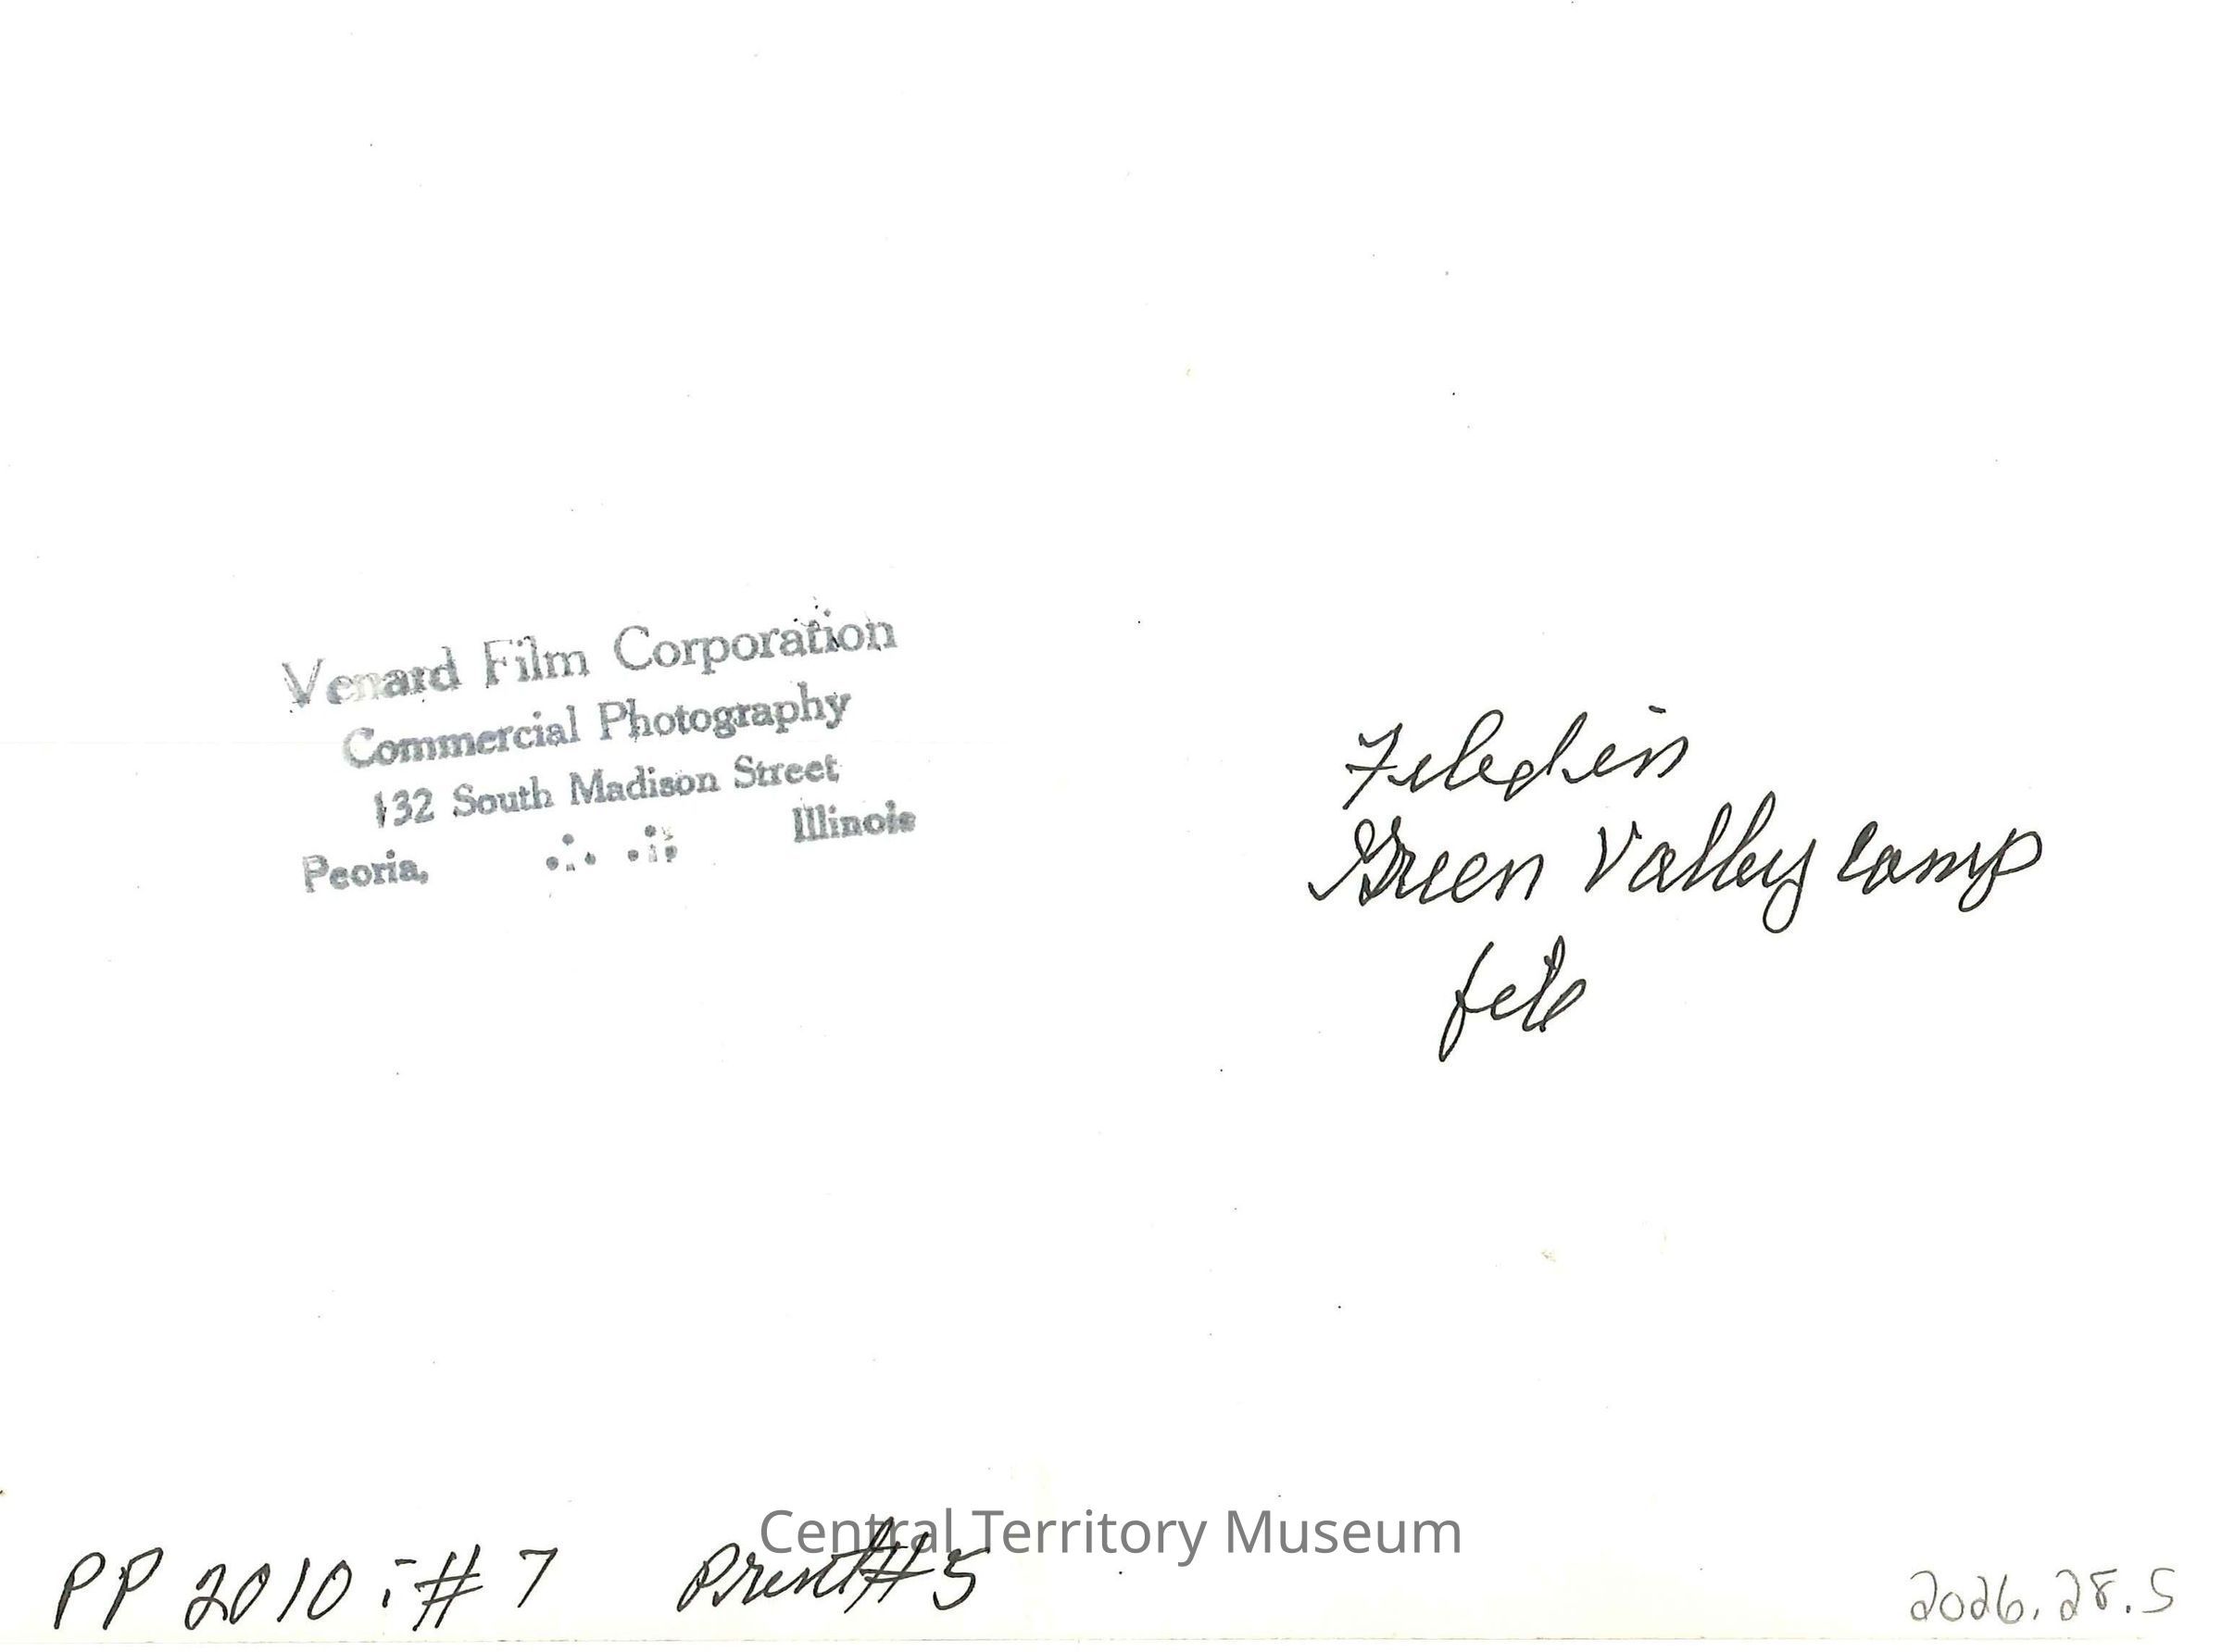 Venard Film Corporation
Commercial Photography
132 South Madison Street
Peoria, Illinois
Filed in
Green Valley Camp
file
PP 2010:#7 Print #5
2026.28.5
Central Territory Museum